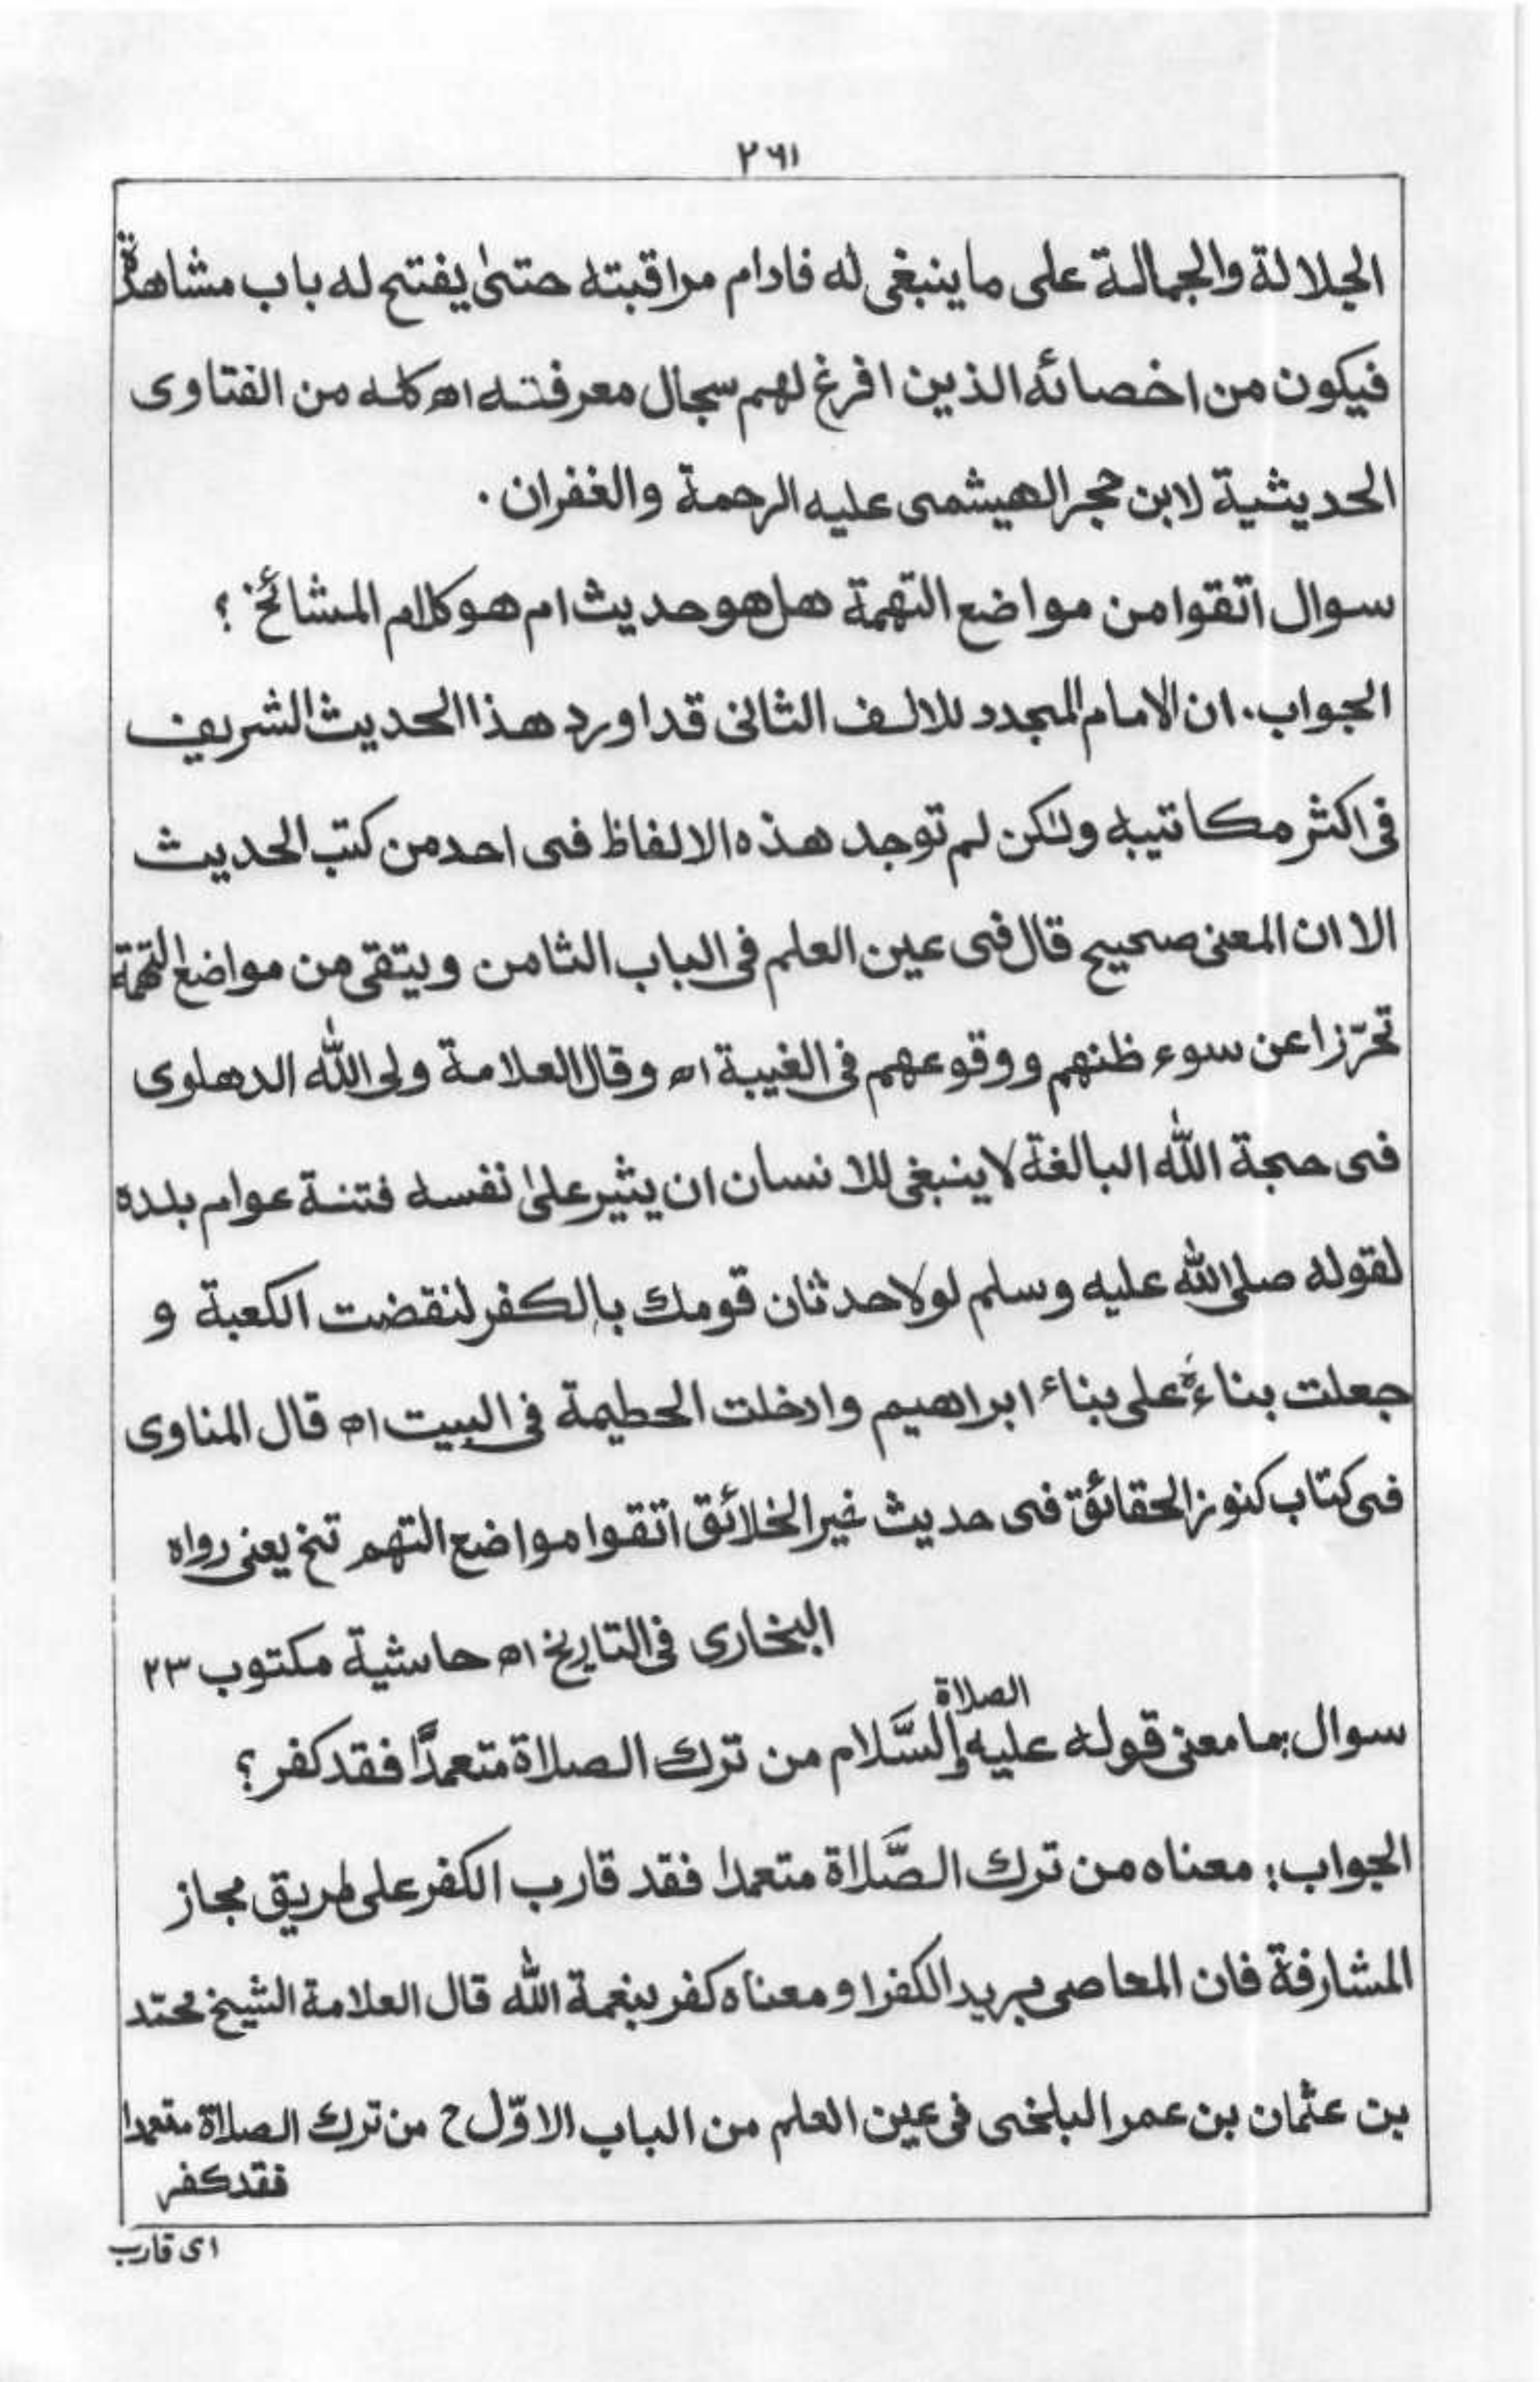 ٢٦١
الجلالة والجمالة على ما ينبغى له فادام مراقبته حتىٰ يفتح له باب مشاهدته
فيكون من اخصائه الذين افرغ لهم سجال معرفته اه كله من الفتاوى
الحديثية لابن حجر الهيشمى عليه الرحمة والغفران .
سوال اتقوا من مواضع التهمة هل هو حديث ام هو كلام المشائخ ؟
الجواب . ان الامام المجدد للالف الثانى قد اورد هذا الحديث الشريف
فى اكثر مكاتيبه ولٰكن لم توجد هذه الالفاظ فى احد من كتب الحديث
الا ان المعنى صحيح قال فى عين العلم فى الباب الثامن ويتقى من مواضع التهمة
تحرّزا عن سوء ظنهم ووقوعهم فى الغيبة اه وقال العلامة ولى اللّٰه الدهلوى
فى حجة اللّٰه البالغة لا ينبغى للانسان ان يثير علىٰ نفسه فتنة عوام بلده
لقوله صلى اللّٰه عليه وسلم لولا حدثان قومك بالكفر لنقضت الكعبة و
جعلت بناءهٗ على بناء ابراهيم وادخلت الحطيمة فى البيت اه قال المناوى
فى كتاب كنوز الحقائق فى حديث خير الخلائق اتقوا مواضع التهم تخ يعنى رواه
البخارى فى التاريخ اه حاشية مكتوب ٢٣
سوال : ما معنى قوله عليه الصلاة والسَّلام من ترك الصلاة متعمدًا فقد كفر ؟
الجواب : معناه من ترك الصَّلاة متعمدا فقد قارب الكفر على طريق مجاز
المشارفة فان المعاصى بريد الكفر او معناه كفر بنعمة اللّٰه قال العلامة الشيخ محمّد
بن عثمان بن عمر البلخى فى عين العلم من الباب الاوّل ح من ترك الصلاة متعمدا
فقد كفر
اى قارب